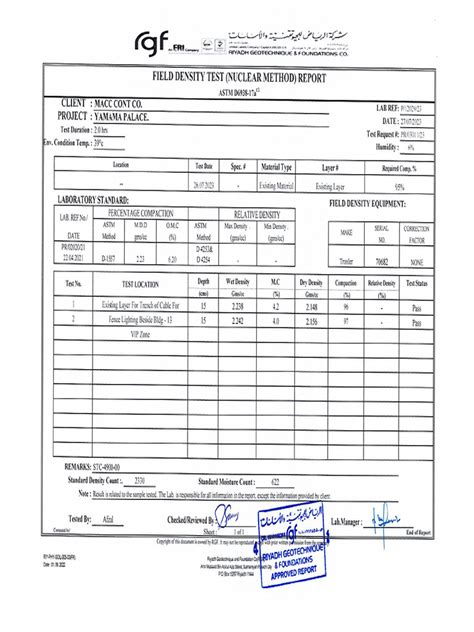 شركة الرياض للجيوتقنية والأساسات
rgf
An ERI Company
RIYADH GEOTECHNIQUE & FOUNDATIONS CO.
FIELD DENSITY TEST (NUCLEAR METHOD) REPORT
ASTM D6938-17a
CLIENT : MACC CONT CO.
LAB REF:
PROJECT : YAMAMA PALACE.
DATE : 27/07/2023
Test Duration : 2.0 hrs
Test Request #
Env. Condition Temp. : 39°c
Humidity : 6%
Location Test Date Spec. # Material Type Layer # Required Comp. %
-- 26.07.2023 - Existing Material Existing Layer 95%
LABORATORY STANDARD:
FIELD DENSITY EQUIPMENT:
LAB. REF.No / DATE
PERCENTAGE COMPACTION RELATIVE DENSITY
ASTM Method M.D.D (gm/cc) O.M.C (%) ASTM Method Max Density . (gm/cc) Min Density . (gm/cc)
MAKE SERIAL NO. CORRECTION FACTOR
PR/02020/21
22.04.2021 D-1557 2.23 6.20 D-4253& D-4254
Troxler 70682 NONE
Test No. TEST LOCATION Depth (cms) Wet Density (gm/cc) M.C (%) Dry Density (gm/cc) Compaction (%) Relative Density (%) Test Status
1 Existing Layer For Trench of Cable For 15 2.238 4.2 2.148 96 - Pass
2 Fence Lighting Beside Bldg - 13 15 2.242 4.0 2.156 97 - Pass
VIP Zone
REMARKS: STC-4900-00
Standard Density Count :. 2330 Standard Moisture Count : 622
Note : Result is related to the sample tested. The Lab. is responsible for all information in the report, except the information provided by client.
Tested By: Afzal Checked/Reviewed By : Lab.Manager :
Sheet : 1 of 1
End of Report
Copyright of this document is owned by RGF. It may not be reproduced
with prior written permission from
الرياض للجيوتقنية والأساسات
rgf
RIYADH GEOTECHNIQUE
& FOUNDATIONS
APPROVED REPORT
Riyadh Geotechnique and Foundation Co
P.O Box